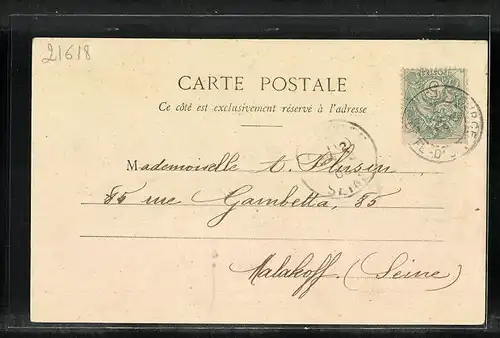 21618
CARTE POSTALE
Ce côté est exclusivement réservé à l'adresse
Mademoiselle A. Plusin
85 rue Gambetta, 85
Malakoff. (Seine)
SEINE